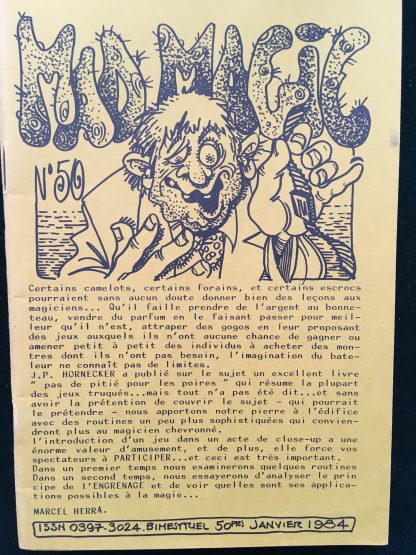 MAD MAGIC
N°50
Certains camelots, certains forains, et certains escrocs
pourraient sans aucun doute donner bien des leçons aux
magiciens... Qu'il faille prendre de l'argent au bonne-
teau, vendre du parfum en le faisant passer pour meil-
leur qu'il n'est, attraper des gogos en leur proposant
des jeux auxquels ils n'ont aucune chance de gagner ou
amener petit à petit des individus à acheter des mon-
tres dont ils n'ont pas besoin, l'imagination du bate-
leur ne connaît pas de limites.
J.P. HORNECKER a publié sur le sujet un excellent livre
" pas de pitié pour les poires " qui résume la plupart
des jeux truqués...mais tout n'a pas été dit...et sans
avoir la prétention de couvrir le sujet - qui pourrait
le prétendre - nous apportons notre pierre à l'édifice
avec des routines un peu plus sophistiquées qui convien-
dront plus au magicien chevronné.
l'introduction d'un jeu dans un acte de close-up a une
énorme valeur d'amusement, et de plus, elle force vos
spectateurs à PARTICIPER...et ceci est très important.
Dans un premier temps nous examinerons quelques routines
Dans un second temps, nous essayerons d'analyser le prin
cipe de l'ENGRENAGE et de voir quelles sont ses applica-
tions possibles à la magie...
MARCEL HERRA.
ISSN 0397-3024. BIMESTRUEL 50FRS JANVIER 1984